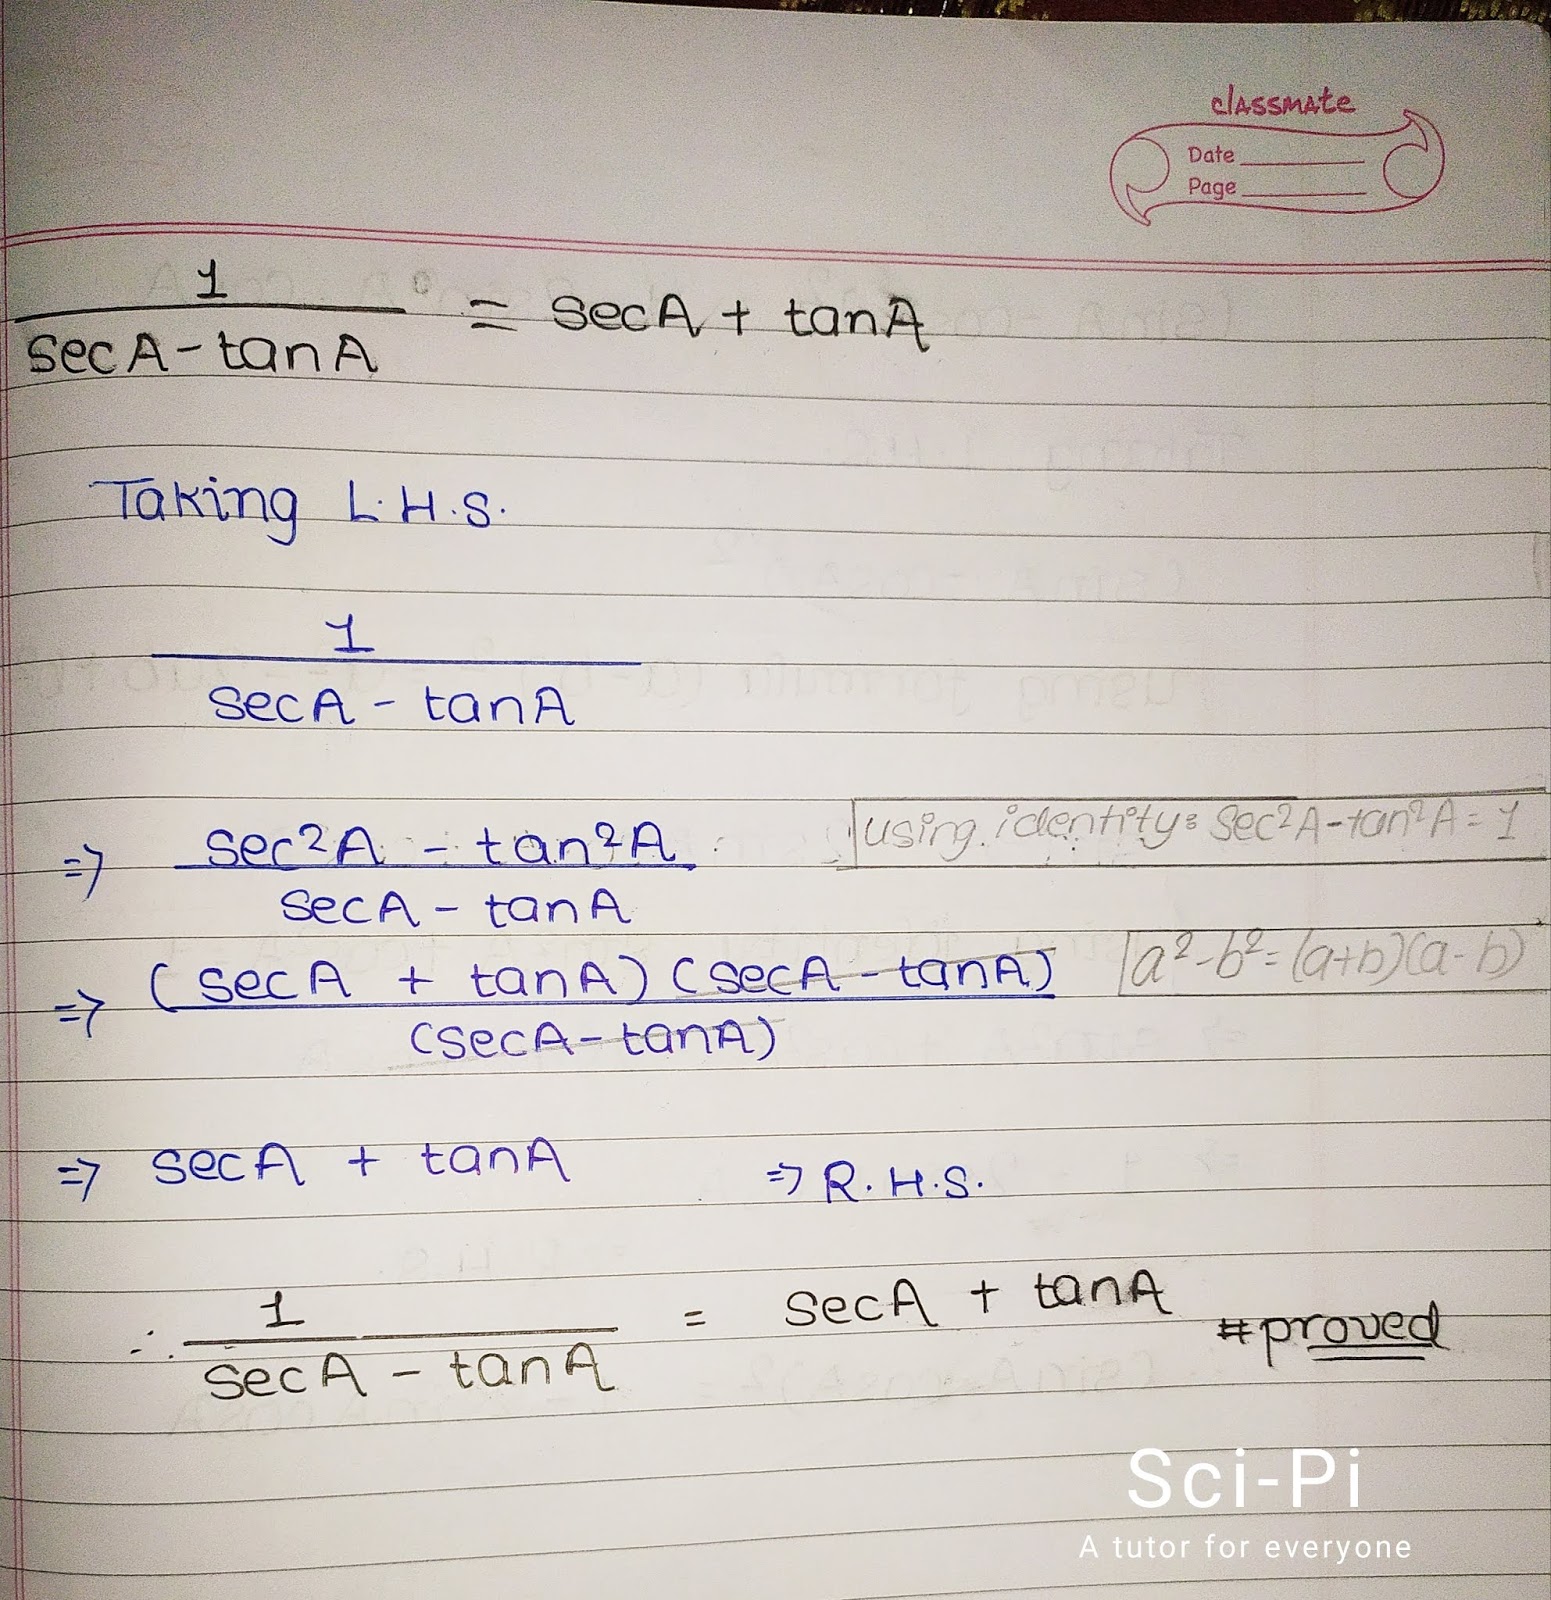 classmate
Date
Page
1/(secA - tanA) = secA + tanA
Taking L.H.S.
1/(secA - tanA)
⇒ (sec²A - tan²A)/(secA - tanA) using identity: sec²A - tan²A = 1
⇒ (secA + tanA)(secA - tanA)/(secA - tanA) a² - b² = (a+b)(a-b)
⇒ secA + tanA ⇒ R.H.S.
∴ 1/(secA - tanA) = secA + tanA #proved
Sci-Pi
A tutor for everyone